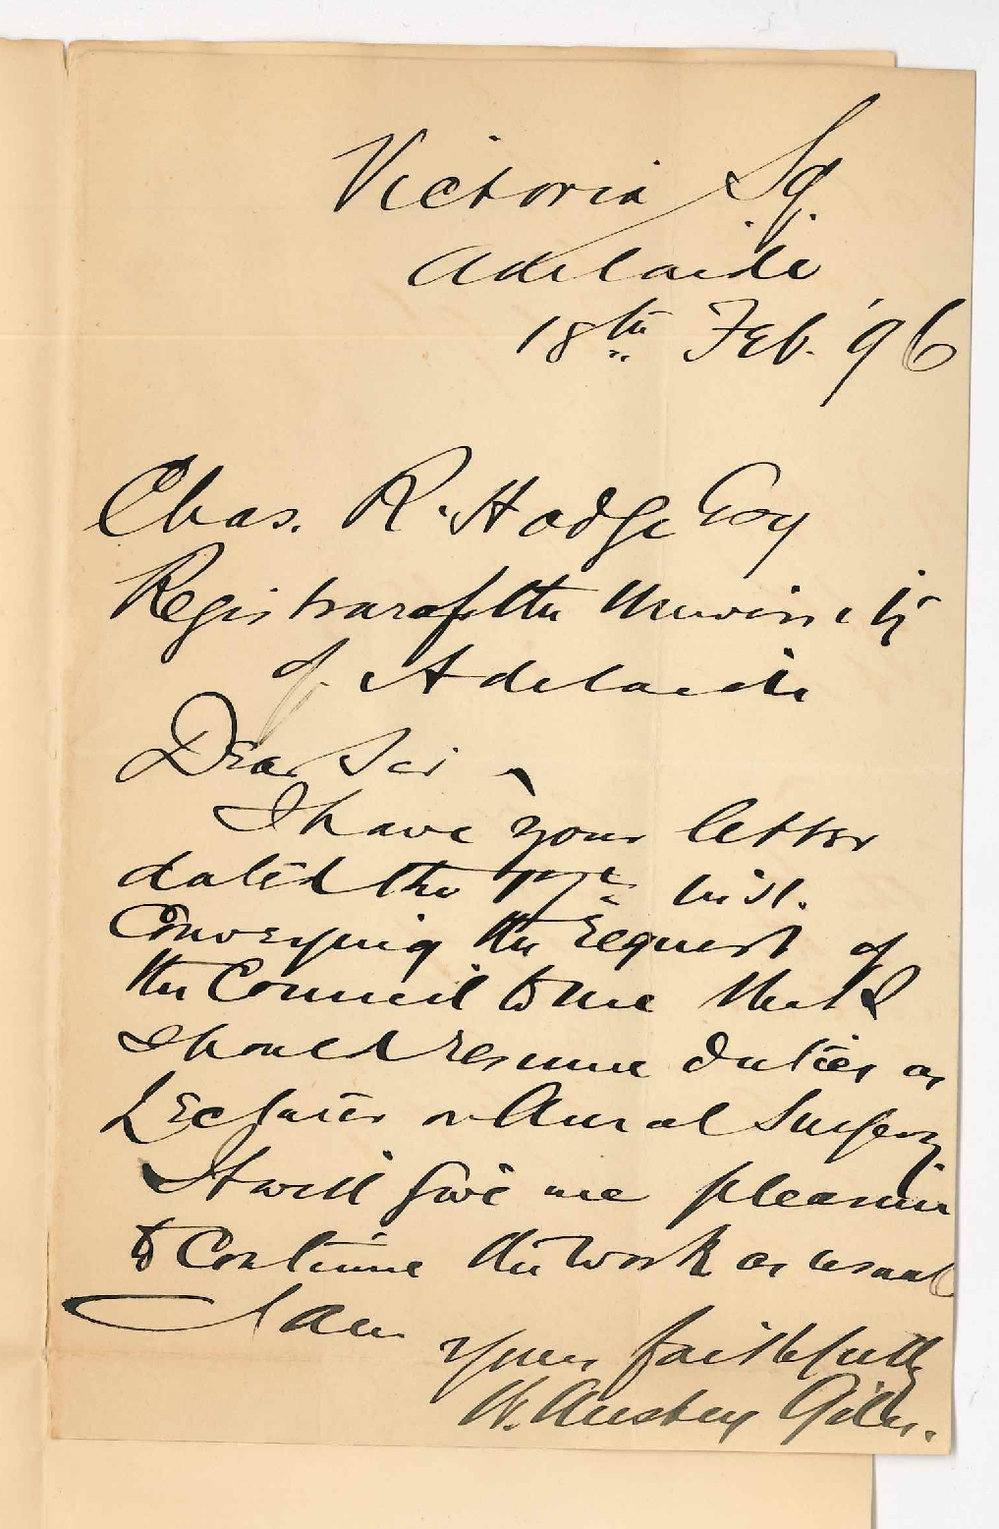 Victoria Sq.
Adelaide
18th Feb. '96
Chas. R. Hodge Esq
Registrar of the University
of Adelaide
Dear Sir,
I have your letter
dated the 17th inst.
Conveying the request of
the Council to me that I
should resume duties as
Lecturer on Aural Surgery.
It will give me pleasure
to Continue the work as usual
I am
Yours faithfully
W. Anstey Giles.